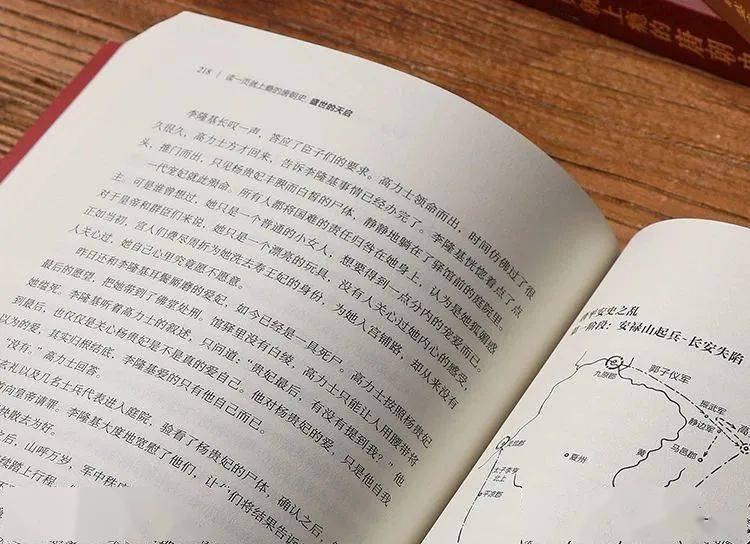 218 | 读一页就上瘾的唐朝史 盛世的天启
李隆基长叹一声，答应了臣子们的要求。高力士领命而出，时间仿佛过了很
久很久，高力士方才回来，告诉李隆基事情已经办完了。李隆基恍惚着点了点
头，推门而出，只见杨贵妃丰腴而白皙的尸体，静静地躺在了驿馆前的庭院里。
一代宠妃就此殒命。所有人都将国难的责任归咎在她身上，认为是她狐媚惑
主，可是谁曾想过，她只是一个普通的小女人，想要得到一点分内的宠爱而已。
对于皇帝和群臣们来说，她只是一个漂亮的玩具，没有人关心过她内心的感受，
正如当初，宫人们费尽周折为她洗去寿王妃的身份，为她入宫铺路，却从来没有
人关心过，她自己心里究竟愿不愿意。
昨日还和李隆基耳鬓厮磨的爱妃，如今已经是一具死尸。高力士按照杨贵妃
最后的愿望，把她带到了佛堂处刑，馆驿里没有白绫，高力士只能让人用腰带将
她缢死。李隆基听着高力士的叙述，只问道：“贵妃最后，有没有提到我？”他
到最后，也仅仅是关心杨贵妃是不是真的爱自己。他对杨贵妃的爱，只是他自我
以为的爱，其实归根结底，李隆基爱的只有他自己而已。
“没有。”高力士回答。
玄礼以及几名士兵代表进入庭院，验看了杨贵妃的尸体，确认之后，
向皇帝请罪。李隆基大度地宽慰了他们，让他们将结果告诉
快散去为好。
之后，山呼万岁，军中秩
续踏上行程
平安史之乱
一阶段：安禄山起兵-长安失陷
郭子仪军
九原郡
振武军
静边军
马邑郡
夏州
黄
太子李亨
北上
平凉郡